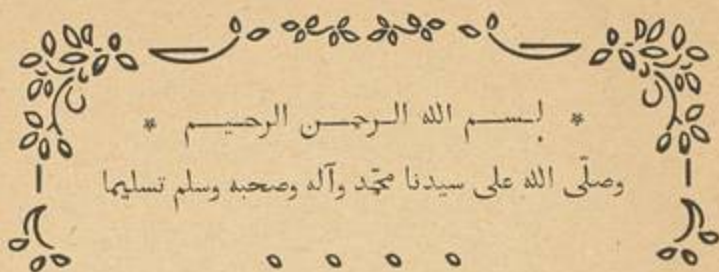 * بسم الله الرحمن الرحيم *
وصلّى الله على سيدنا محمّد وآله وصحبه وسلم تسليما